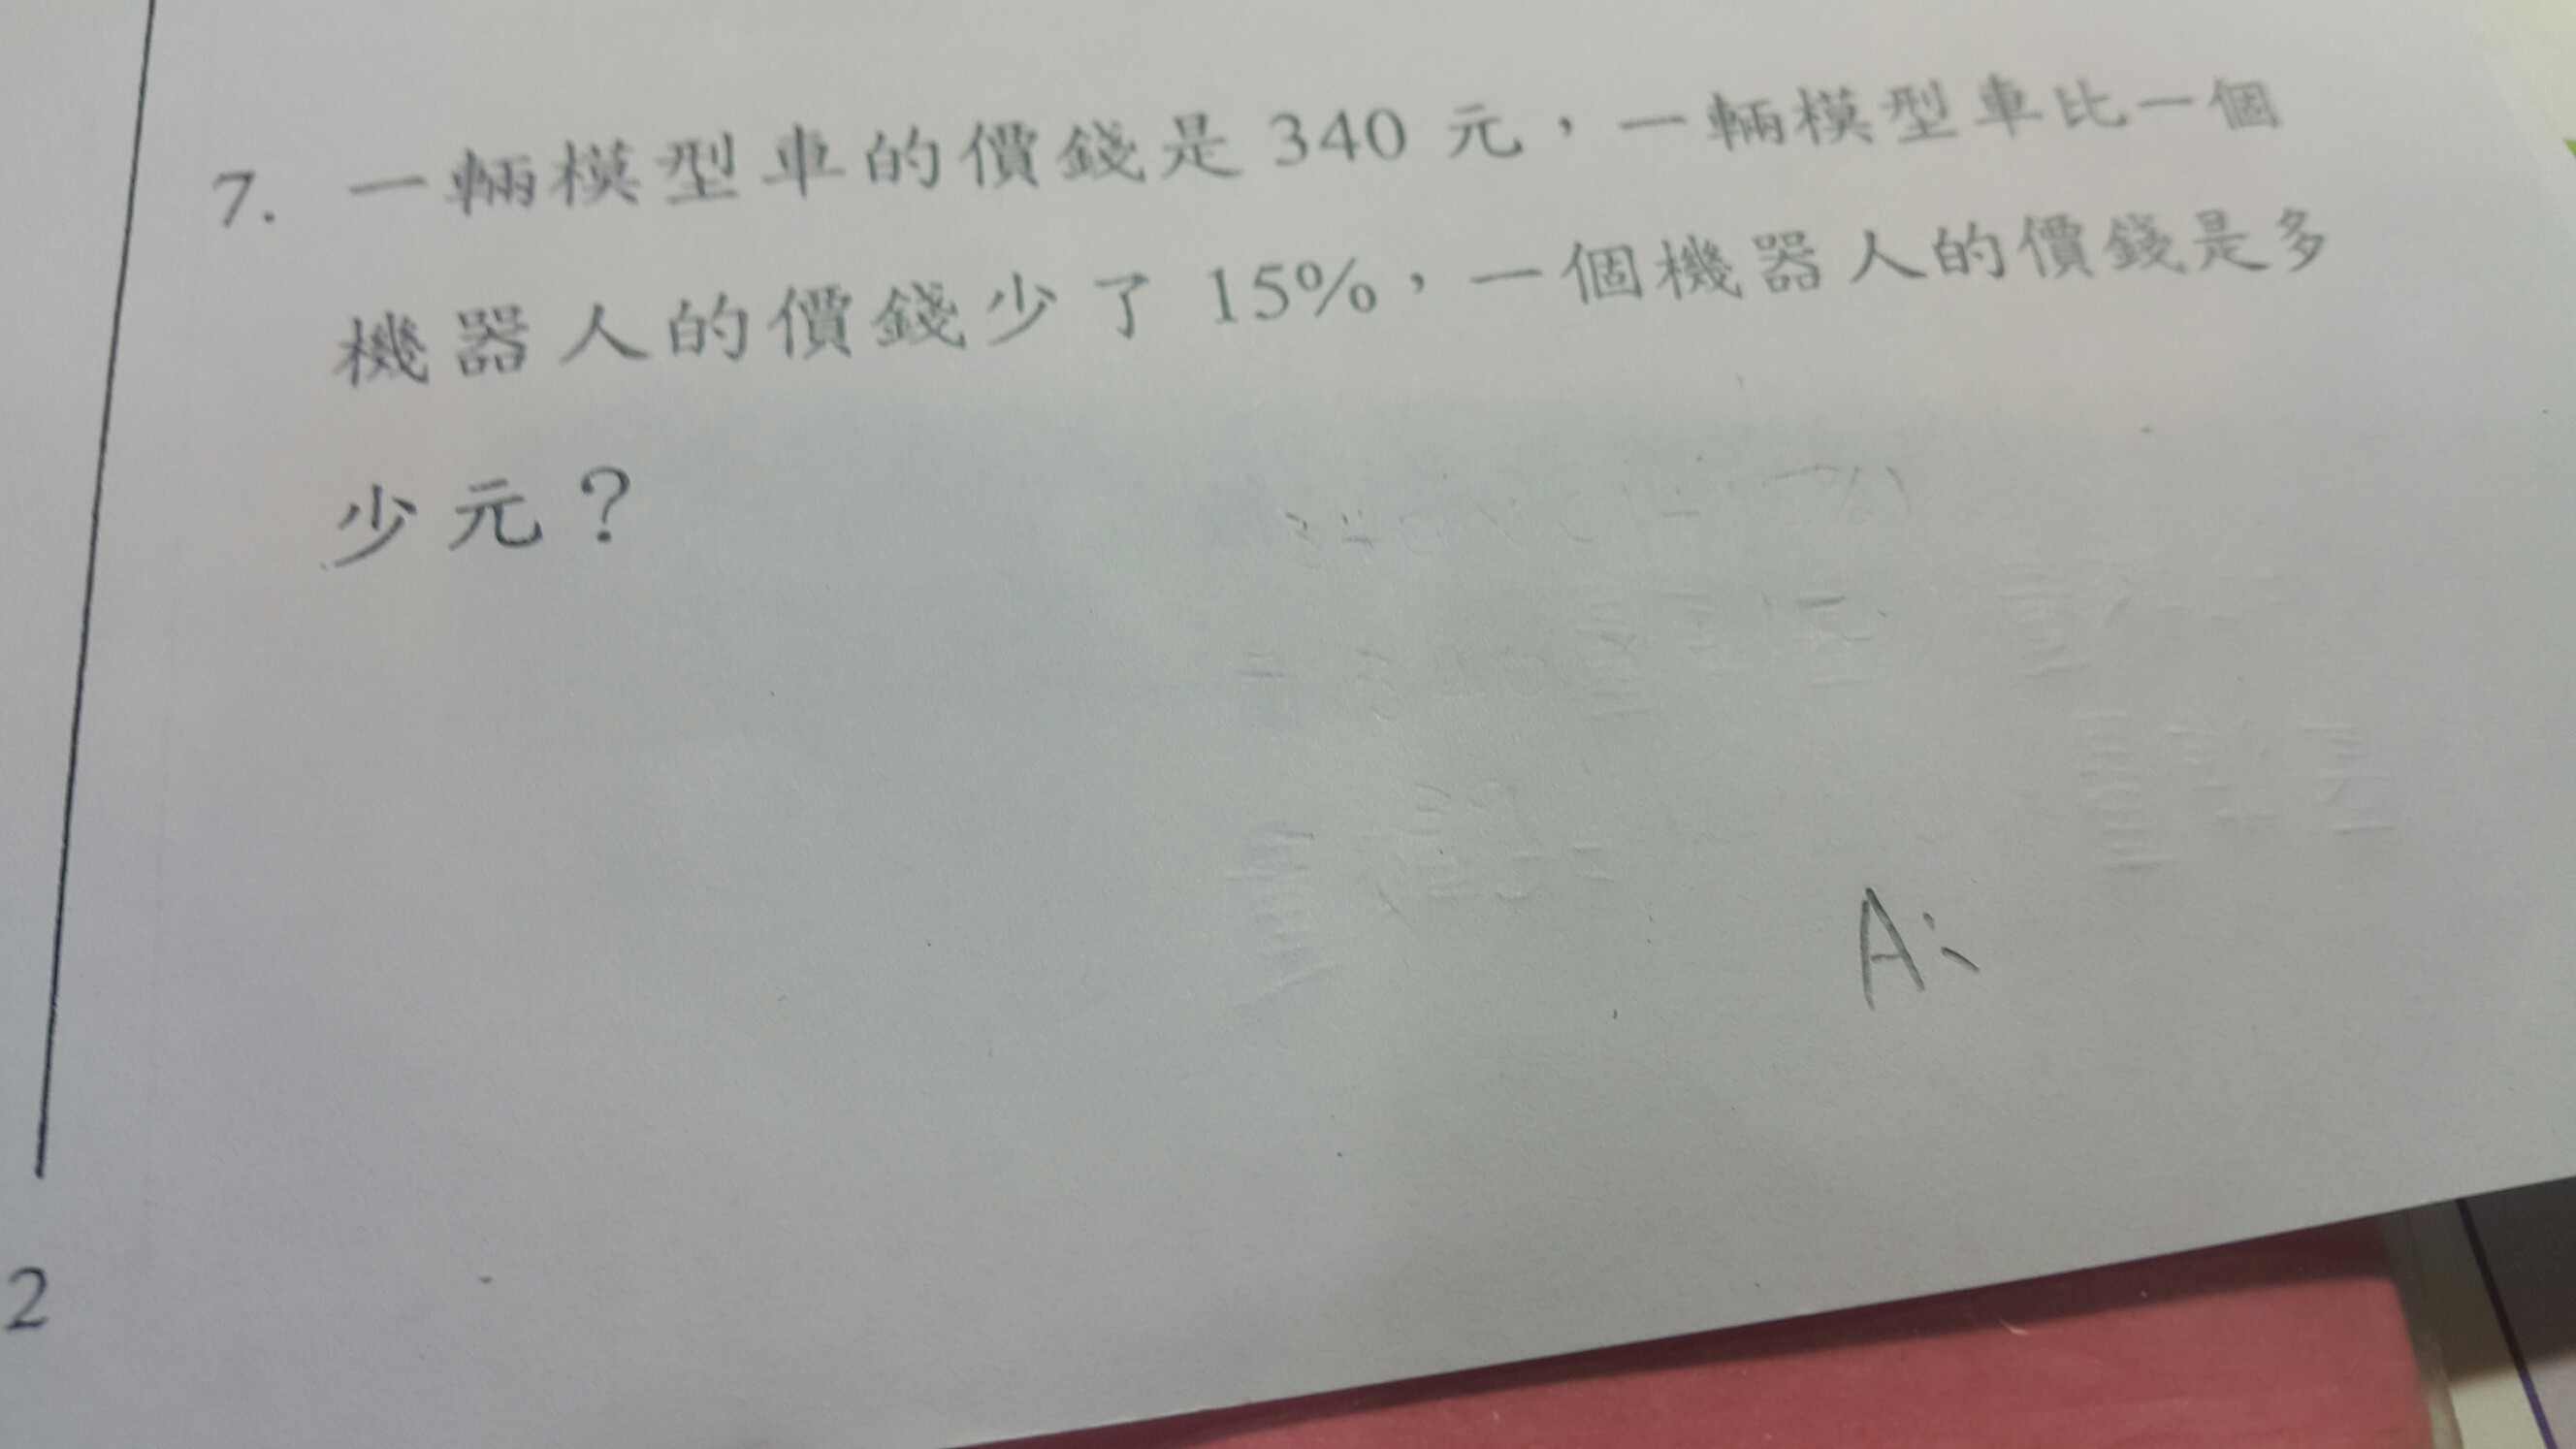 7. 一輛模型車的價錢是 340 元，一輛模型車比一個
機器人的價錢少了 15%，一個機器人的價錢是多
少元？
A:
2